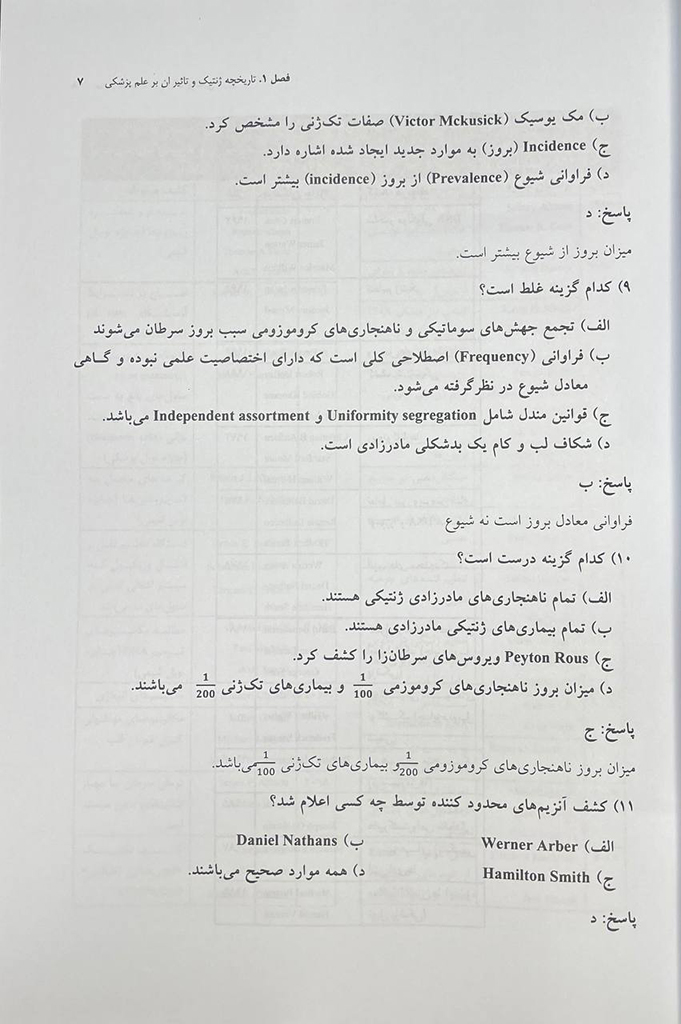 فصل ۱. تاریخچه ژنتیک و تاثیر ان بر علم پزشکی ۷
ب) مک یوسیک (Victor Mckusick) صفات تک‌ژنی را مشخص کرد.
ج) Incidence (بروز) به موارد جدید ایجاد شده اشاره دارد.
د) فراوانی شیوع (Prevalence) از بروز (incidence) بیشتر است.
پاسخ: د
میزان بروز از شیوع بیشتر است.
۹) کدام گزینه غلط است؟
الف) تجمع جهش‌های سوماتیکی و ناهنجاری‌های کروموزومی سبب بروز سرطان می‌شوند
ب) فراوانی (Frequency) اصطلاحی کلی است که دارای اختصاصیت علمی نبوده و گاهی
معادل شیوع در نظرگرفته می‌شود.
ج) قوانین مندل شامل Uniformity segregation و Independent assortment می‌باشد.
د) شکاف لب و کام یک بدشکلی مادرزادی است.
پاسخ: ب
فراوانی معادل بروز است نه شیوع
۱۰) کدام گزینه درست است؟
الف) تمام ناهنجاری‌های مادرزادی ژنتیکی هستند.
ب) تمام بیماری‌های ژنتیکی مادرزادی هستند.
ج) Peyton Rous ویروس‌های سرطان‌زا را کشف کرد.
د) میزان بروز ناهنجاری‌های کروموزمی 1/100 و بیماری‌های تک‌ژنی 1/200 می‌باشند.
پاسخ: ج
میزان بروز ناهنجاری‌های کروموزومی 1/200 و بیماری‌های تک‌ژنی 1/100 می‌باشد.
۱۱) کشف آنزیم‌های محدود کننده توسط چه کسی اعلام شد؟
الف) Werner Arber ب) Daniel Nathans
ج) Hamilton Smith د) همه موارد صحیح می‌باشند.
پاسخ: د